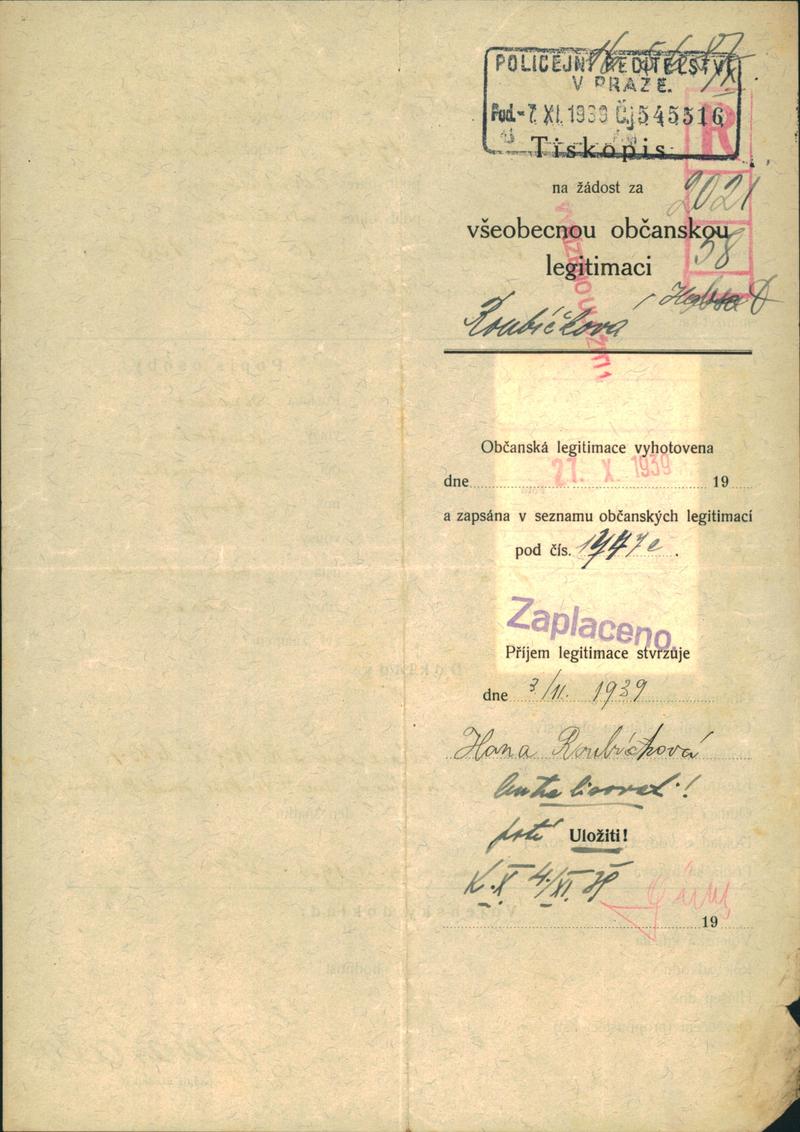 POLICEJNÍ ŘEDITELSTVÍ
V PRAZE.
Pod. -7. XI. 1939 Čj 545516
R
Tiskopis
na žádost za
2021
všeobecnou občanskou
58
legitimaci
Roubíčková
Občanská legitimace vyhotovena
27. X. 1939
dne 19
a zapsána v seznamu občanských legitimací
pod čís. 1947 e .
Zaplaceno
Příjem legitimace stvrzuje
dne 3/11. 1939
Hana Roubíčková
poté Uložiti!
K.X 4/XI. 39
19